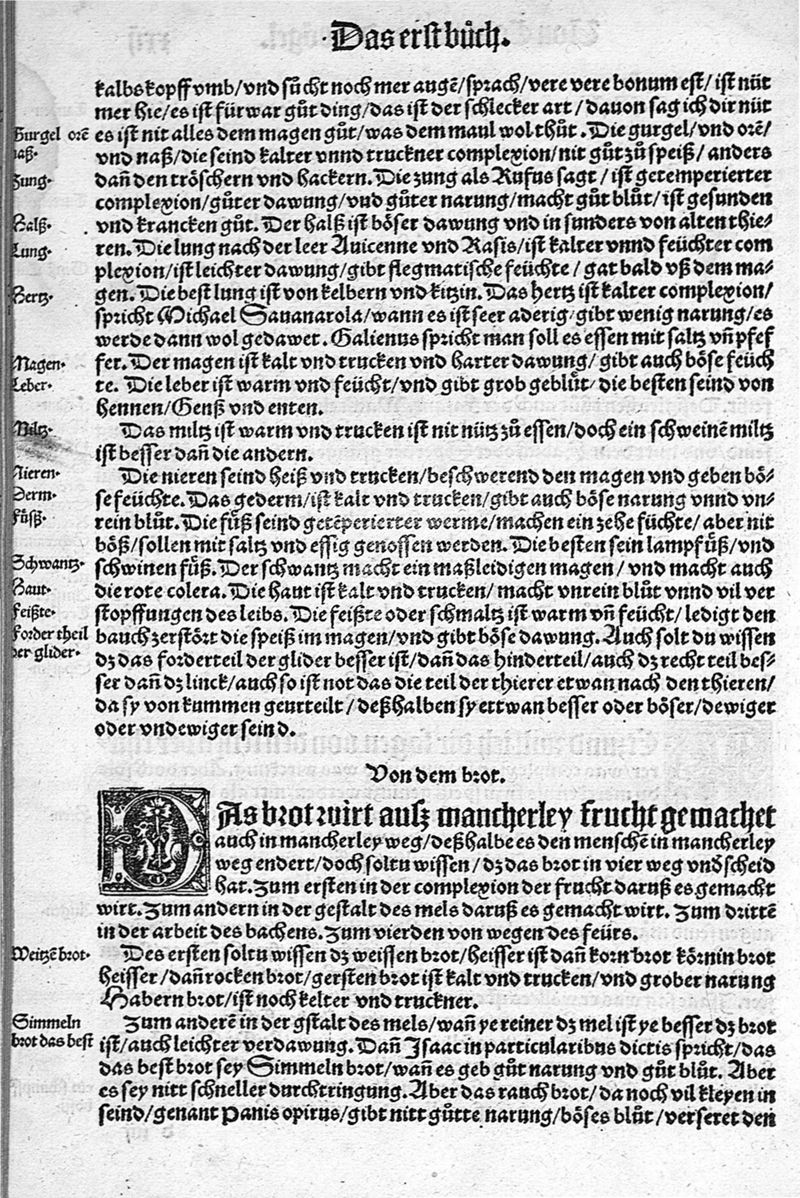 Das erst bůch.
kalbskopff vmb/vnd sůcht noch mer augē/sprach/vere vere bonum est/ ist nüt
mer hie/es ist fürwar gůt ding/das ist der schlecker art/dauon sag ich dir nüt
Gurgel orē
es ist nit alles dem magen gůt/was dem maul wol thůt. Die gurgel/vnd orē/
naß.
vnd naß/die seind kalter vnnd truckner complexion/nit gůt zů speiß/ anders
Zung.
dañ den tröschern vnd hackern. Die zung als Rufus sagt/ist getemperierter
complexion/gůter dawung/vnd gůter narung/macht gůt blůt/ist gesunden
Halß.
vnd krancken gůt. Der halß ist böser dawung vnd in sunders von alten thie-
Lung.
ren. Die lung nach der leer Auicenne vnd Rasis/ist kalter vnnd feüchter com
plexion/ist leichter dawung/gibt flegmatische feüchte/gat bald vß dem ma-
Hertz.
gen. Die best lung ist von kelbern vnd kitzin. Das hertz ist kalter complexion/
spricht Michael Sauanarola/wann es ist seer aderig/gibt wenig narung/es
werde dann wol gedawet. Galienus spricht man soll es essen mit saltz vñ pfef
Magen.
fer. Der magen ist kalt vnd trucken vnd harter dawung/gibt auch böse feüch
Leber.
te. Die leber ist warm vnd feücht/vnd gibt grob geblůt/die besten seind von
hennen/Genß vnd enten.
Miltz.
Das miltz ist warm vnd trucken ist nit nütz zů essen/doch ein schweinē miltz
ist besser dañ die andern.
Nieren.
Die nieren seind heiß vnd trucken/beschwerend den magen vnd geben bö-
Derm.
se feüchte. Das gederm/ist kalt vnd trucken/gibt auch böse narung vnnd vn-
Füß.
rein blůt. Die füß seind getēperierter werme/machen ein zehe füchte/aber nit
böß/sollen mit saltz vnd essig genossen werden. Die besten sein lampfüß/vnd
Schwantz.
schwinen füß. Der schwantz macht ein maßleidigen magen/vnd macht auch
Haut.
die rote colera. Die haut ist kalt vnd trucken/macht vnrein blůt vnnd vil ver
Feißte.
stopffungen des leibs. Die feißte oder schmaltz ist warm vñ feücht/ledigt den
Forder theil
bauch zerstört die speiß im magen/vnd gibt böse dawung. Auch solt du wissen
der glider.
dz das forderteil der glider besser ist/dañ das hinderteil/auch dz recht teil bes-
ser dañ dz linck/auch so ist not das die teil der thierer etwan nach den thieren/
da sy von kummen geurteilt/deßhalben sy ettwan besser oder böser/dewiger
oder vndewiger seind.
Von dem brot.
DAs brot wirt ausz mancherley frucht gemachet
auch in mancherley weg/deßhalbē es den menschē in mancherley
weg endert/doch soltu wissen/dz das brot in vier weg vnd̄scheid
hat. Zum ersten in der complexion der frucht daruß es gemacht
wirt. Zum andern in der gestalt des mels daruß es gemacht wirt. Zum drittē
in der arbeit des bachens. Zum vierden von wegen des feürs.
Weitzē brot.
Des ersten soltu wissen dz weissen brot/heisser ist dañ korn brot körnin brot
heisser/dañ rocken brot/gersten brot ist kalt vnd trucken/vnd grober narung
Habern brot/ist noch kelter vnd truckner.
Simmeln
Zum anderē in der gstalt des mels/wañ ye reiner dz mel ist ye besser dz brot
brot das best
ist/auch leichter verdawung. Dañ Isaac in particularibus dictis spricht/das
das best brot sey Simmeln brot/wañ es geb gůt narung vnd gůt blůt. Aber
es sey nitt schneller durchtringung. Aber das rauch brot/da noch vil kleyen in
seind/genant Panis opirus/gibt nitt gůtte narung/böses blůt/verseret den